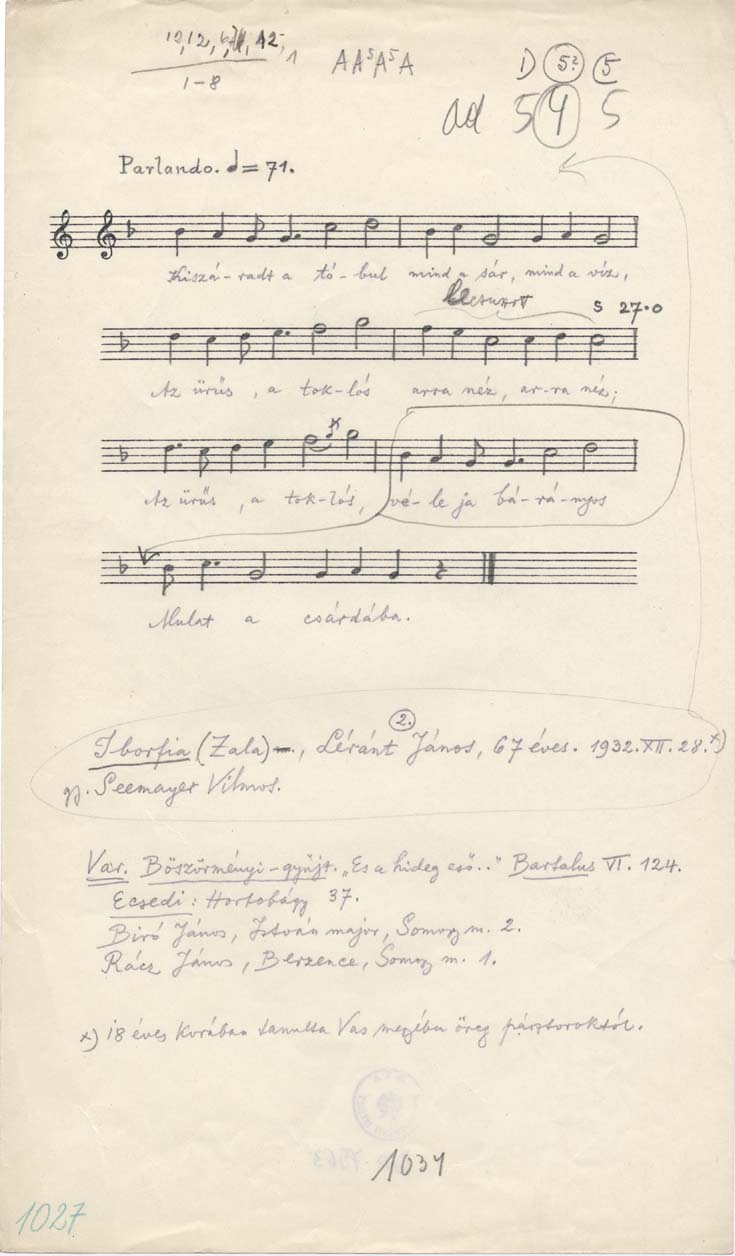 12,12, 12,
1-8
A A⁵ A⁵ A
D 5² 5
ad 5 4 5
Parlando. = 71.
Kiszá-radt a tó-bul mind a sár, mind a víz,
s 27.0
Az ürüs, a tok-lós arra néz, ar-ra néz;
Az ürüs, a tok-lós, vé-le ja bá-rá-nyos
Mulat a csárdába.
2.
Iborfia (Zala)-, Léránt János, 67 éves. 1932.XII.28.x)
gy. Seemayer Vilmos.
Var. Böszörményi-gyűjt. „Es a hideg eső.." Bartalus VI. 124.
Ecsedi: Hortobágy 37.
Biró János, István major, Somogy m. 2.
Rácz János, Berzence, Somogy m. 1.
x) 18 éves korában tanulta Vas megyében öreg pásztoroktól.
1034
1027